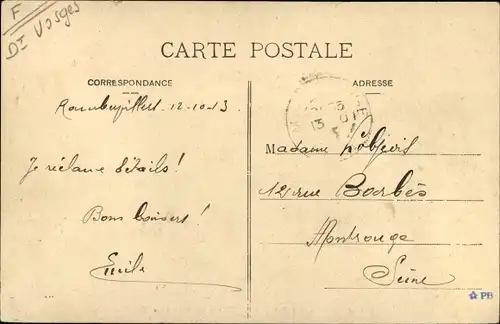 F
Dt Vosges
CARTE POSTALE
CORRESPONDANCE
ADRESSE
Rambervillers. 12-10-13
Je réclame détails!
Bons baisers!
Emile
Madame
12 rue Barbès
Montrouge
Seine
PB